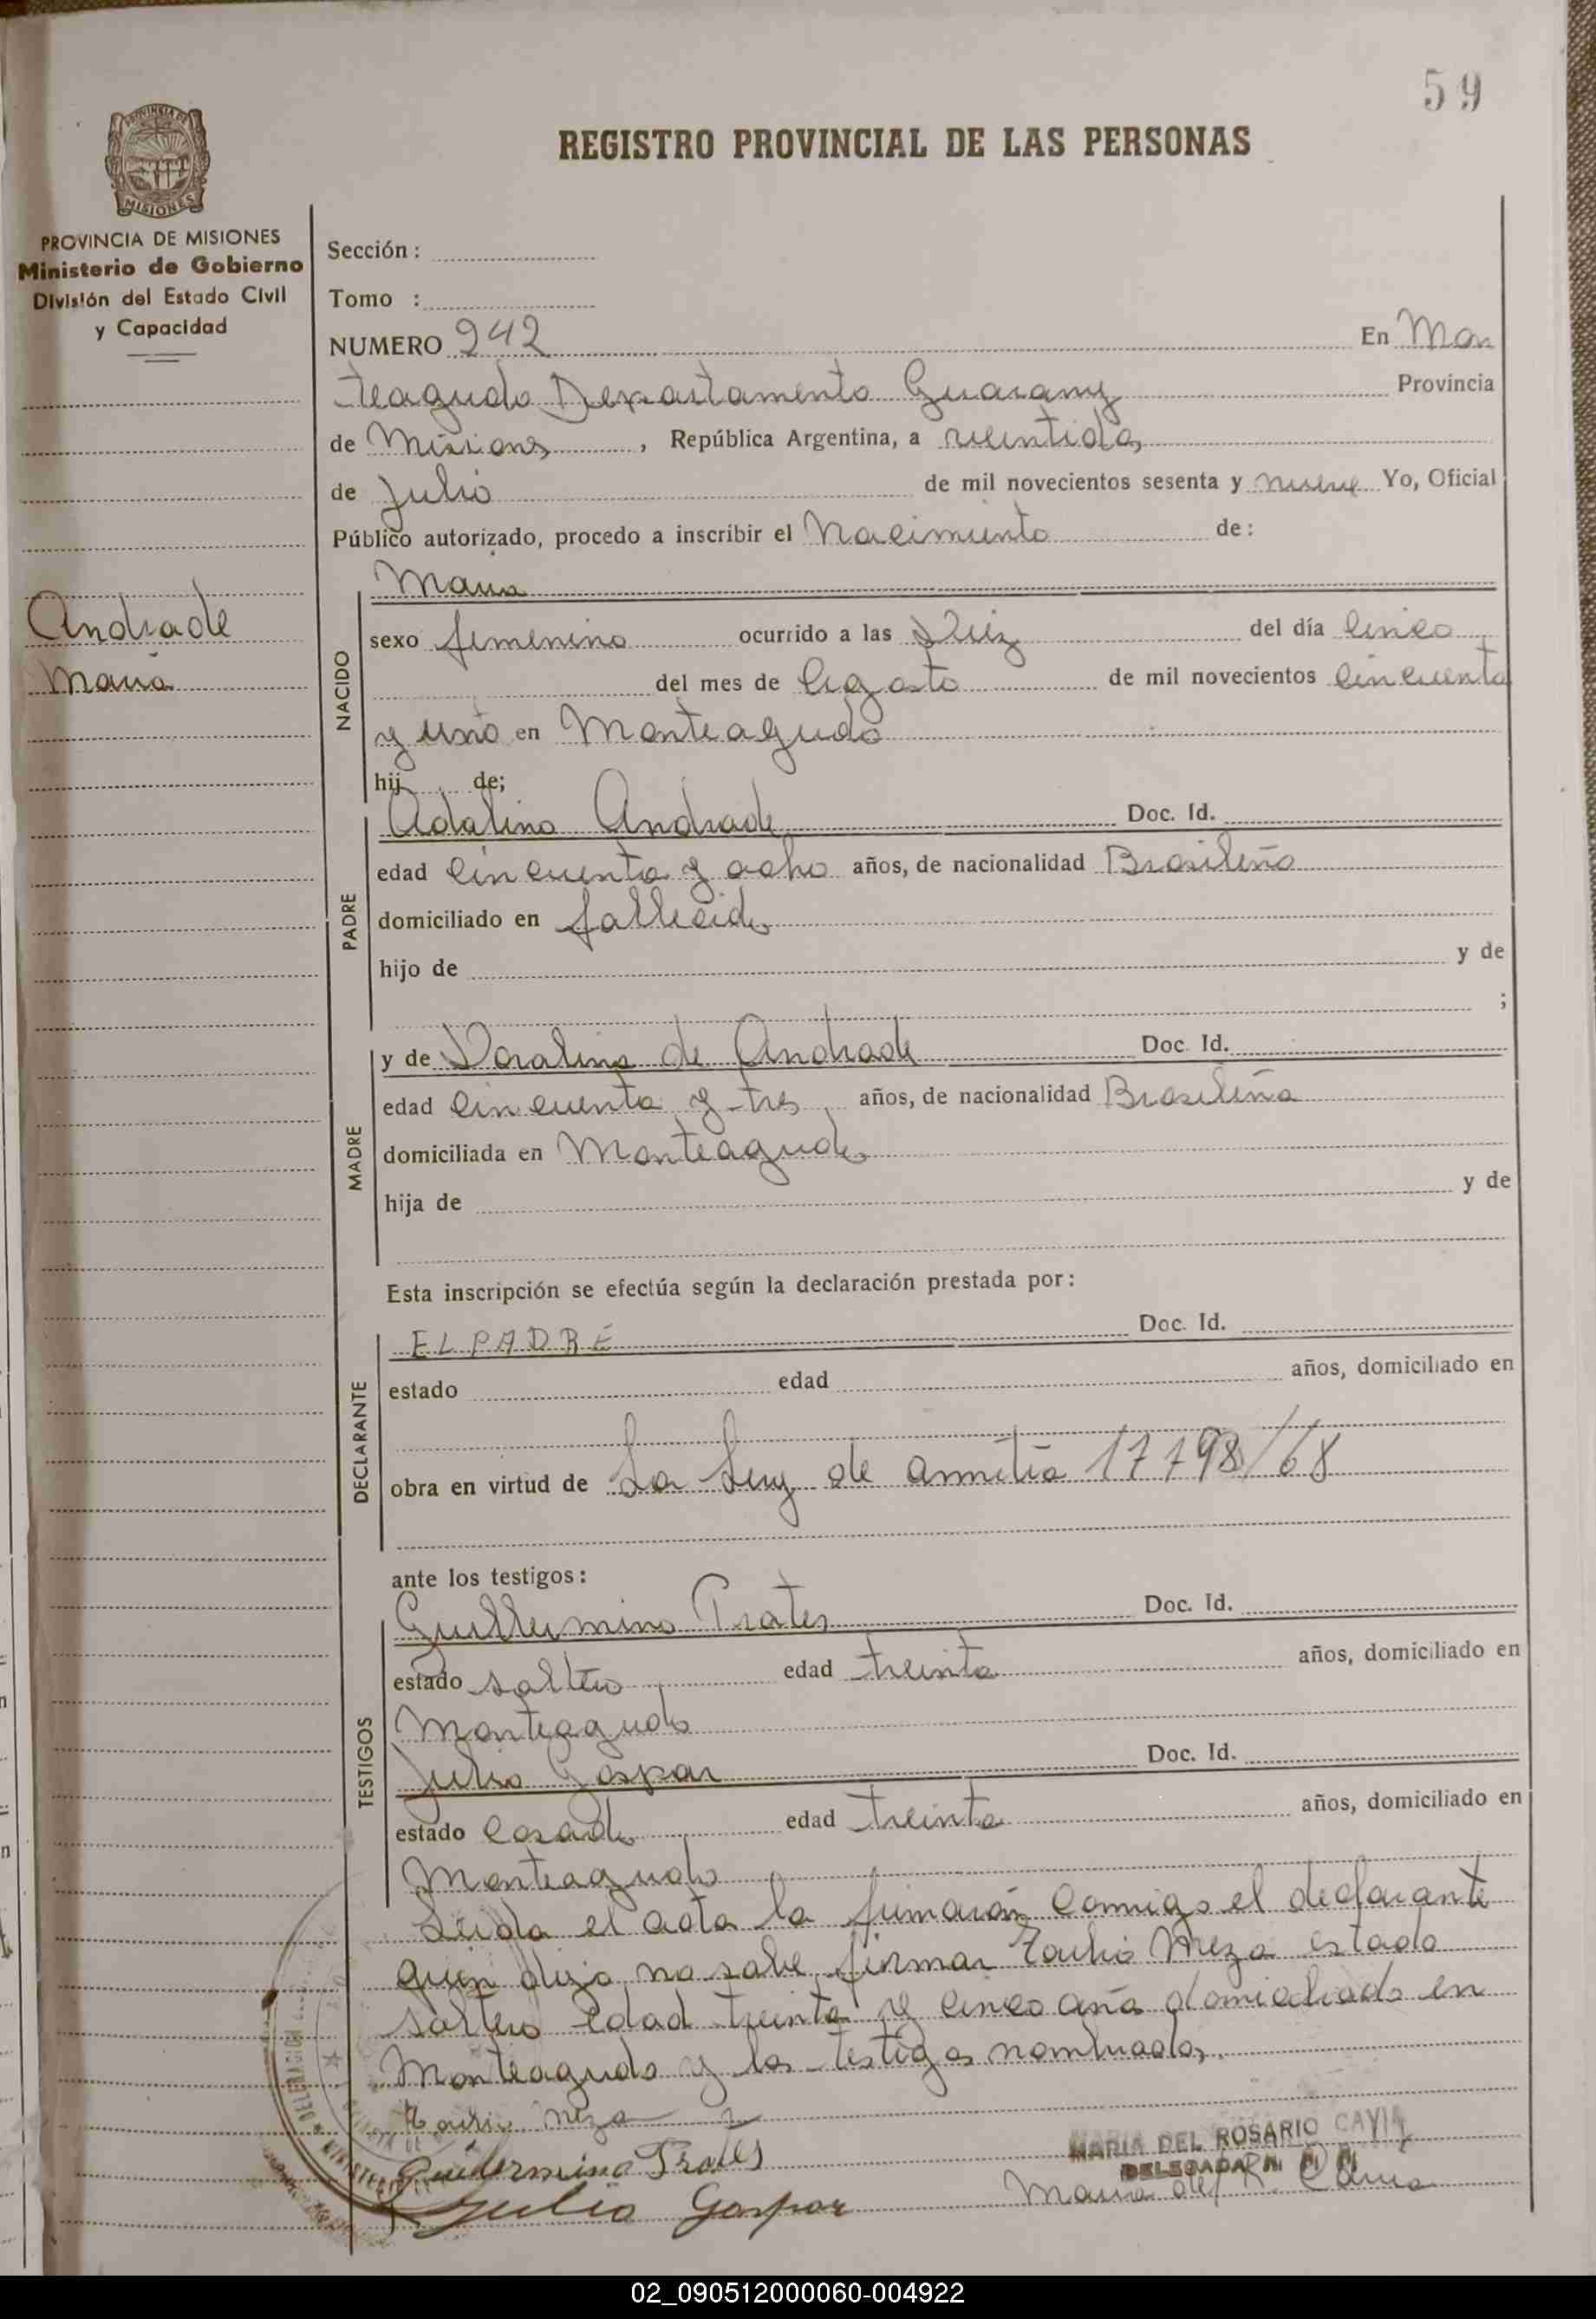 59
REGISTRO PROVINCIAL DE LAS PERSONAS
PROVINCIA DE MISIONES
Ministerio de Gobierno
División del Estado Civil
y Capacidad
Andrade
Maria
Sección:
Tomo :
NUMERO 242 En Mon
teagudo Departamento Guarany Provincia
de Misiones, República Argentina, a veintidos
de Julio de mil novecientos sesenta y nueve Yo, Oficial
Público autorizado, procedo a inscribir el Nacimiento de:
NACIDO
Maria
sexo femenino ocurrido a las Diez del día cinco
del mes de Agosto de mil novecientos cincuenta
y uno en Monteagudo
hij de;
PADRE
Adalino Andrade Doc. Id.
edad cincuenta y ocho años, de nacionalidad Brasileño
domiciliado en fallecido
hijo de y de
;
MADRE
y de Doralina de Andrade Doc. Id.
edad cincuenta y tres años, de nacionalidad Brasileña
domiciliada en Monteagudo
hija de y de
Esta inscripción se efectúa según la declaración prestada por:
DECLARANTE
EL PADRE Doc. Id.
estado edad años, domiciliado en
obra en virtud de La Ley de amnitia 17798/68
ante los testigos:
TESTIGOS
Guillermino Prates Doc. Id.
estado soltero edad treinta años, domiciliado en
Monteagudo
Julio Gaspar Doc. Id.
estado Casado edad treinta años, domiciliado en
Monteagudo
Leida el acta la firmarán conmigo el declarante
quien dijo no sabe firmar Meza estado
soltero edad treinta y cinco años domiciliado en
Monteagudo y los testigos nombrados.
Meza
Guillermino Prates
Julio Gaspar
MARIA DEL ROSARIO CAVIA
DELEGADA
Maria del R. Cavia
02_090512000060-004922